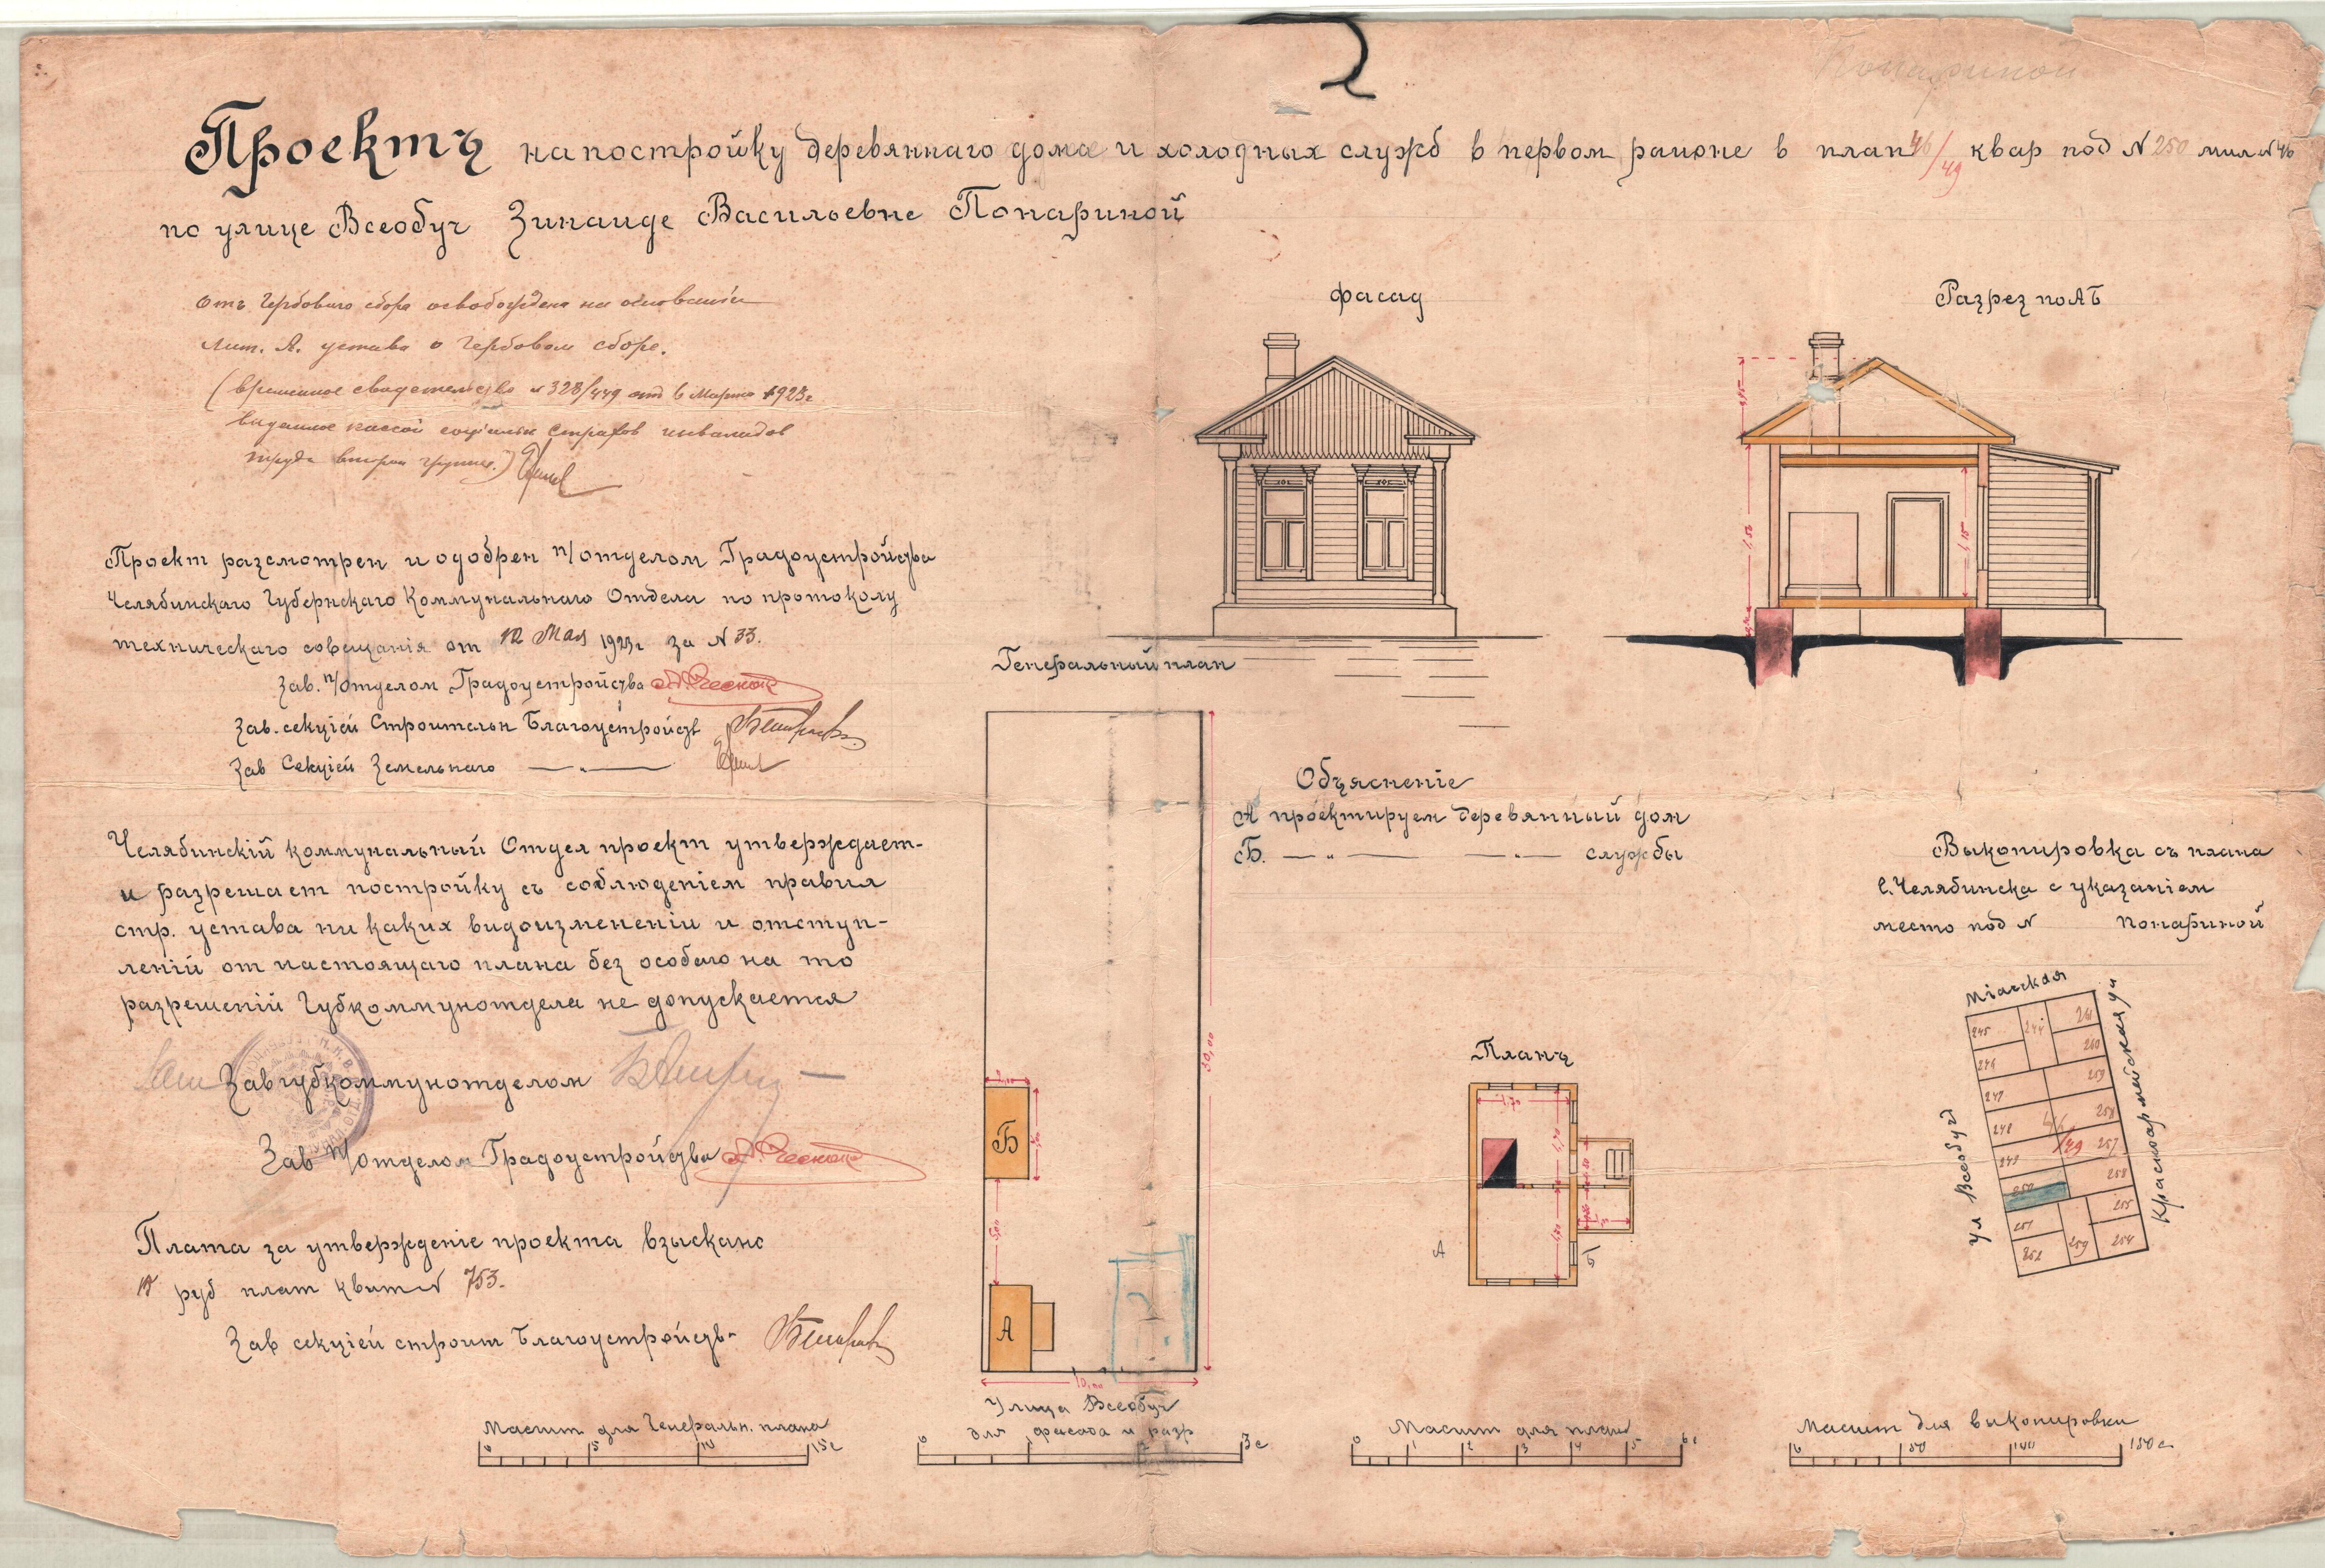 Понариной
Проектъ на постройку деревяннаго дома и холодных служб в первом раионе в план 46/49 квар под N 250 мил N 46
по улице Всеобуч Зинаиде Васильевне Понариной
Отъ Гербового сбора освобождена на основании
Лит. А. устава о Гербовом сборе.
(временное свидетельство N 328/449 от 6 Марта 1923 г
выданное кассой страхов инвалидов
труда второй группы.)
Проект разсмотрен и одобрен п/отделом Градоустройства
Челябинскаго Губернскаго Коммунальнаго Отдела по протоколу
техническаго совещанія от 12 Мая 1923 г за N 33.
Зав. п/отделом Градоустройства
Зав. секціей Строительн Благоустройств
Зав Секціей Земельнаго — „ —
Челябинскій коммунальный Отдел проект утверждает
и разрешает постройку съ соблюденіем правил
стр. устава ни каких видоизмененіи и отступ-
леній от настоящаго плана без особаго на то
разрешеній Губкоммунотдела не допускается
Зав губкоммунотделом
Зав п/отделом Градоустройства
Плата за утвержденіе проекта взыскано
руб плат квит N 753.
Зав секціей строит Благоустройств
фасад
Разрез по АБ
1,50
1,15
Генеральный план
Б
А
5,00
30,00
10,00
Улица Всеобуч
Объясненіе
А проектируем деревянный дом
Б. — „ — — „ — службы
Планъ
1,70
1,70
А
Б
Выкопировка съ плана
г. Челябинска с указаніем
место под N Понариной
Міасская
ул Всеобуч
Красноармейская ул
245
244
261
246
260
247
259
248
258
46/49
249
257
250
258
251
255
252
259
254
Масшт для Генеральн. плана
0 5 10 15 с
для фасада и разр
0 3 с
Масшт для план
0 1 2 3 4 5 6 с
Масшт для выкопировки
0 50 100 150 с